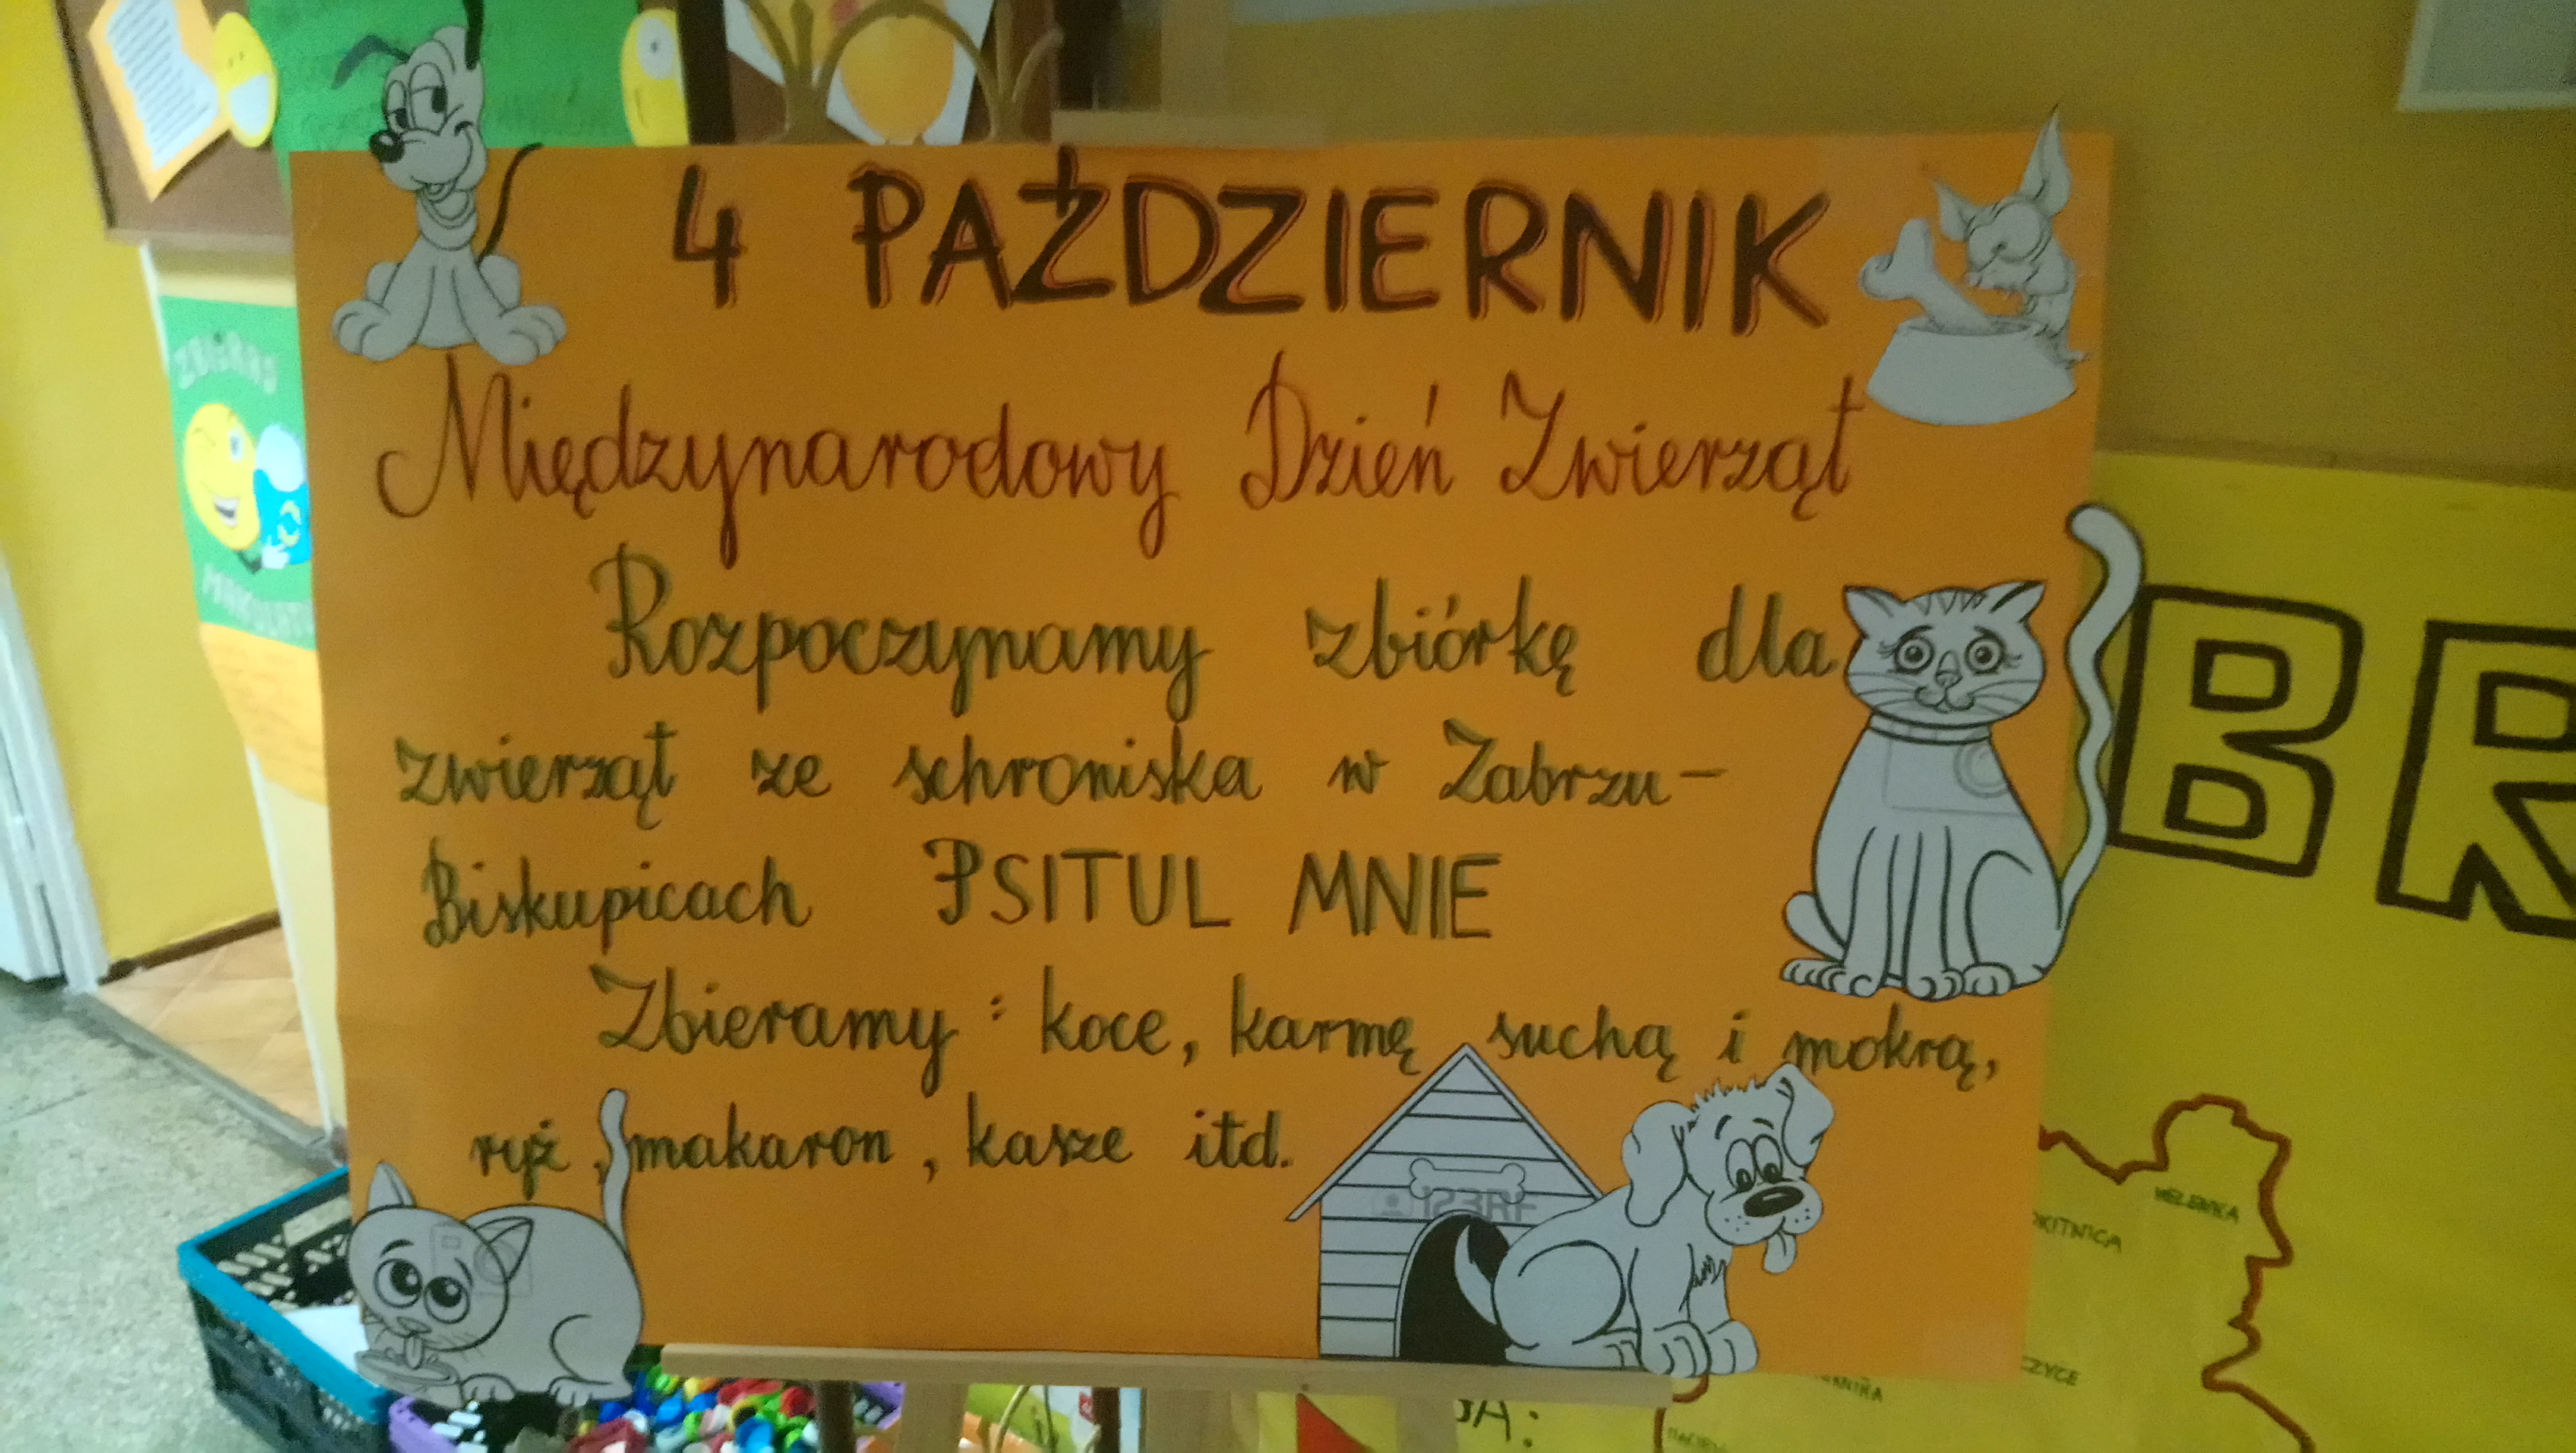 4 PAŹDZIERNIK
Międzynarodowy Dzień Zwierząt
Rozpoczynamy zbiórkę dla
zwierząt ze schroniska w Zabrzu-
Biskupicach PSITUL MNIE
Zbieramy: koce, karmę suchą i mokrą,
ryż, makaron, kasze itd.
123RF
BR